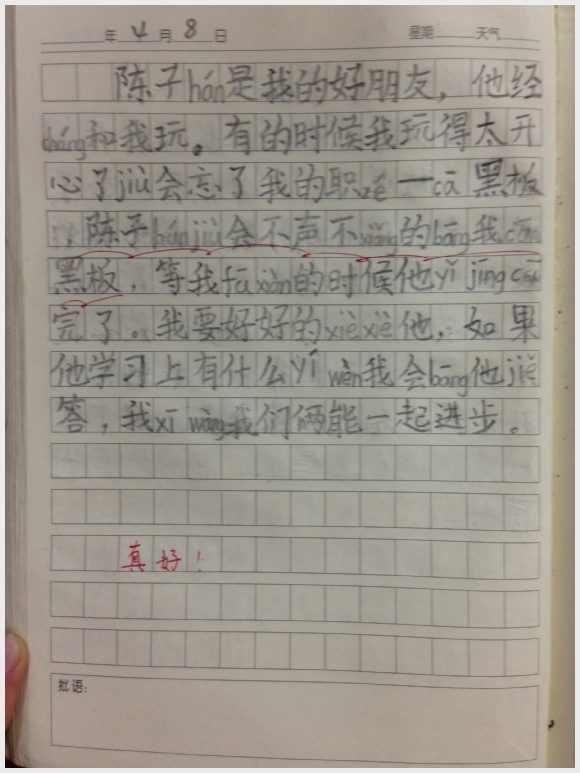 年 4 月 8 日 星期 天气
陈子hán是我的好朋友，他经
cháng和我玩。有的时候我玩得太开
心了jiù会忘了我的职zé一cā黑板
，陈子hánjiù会不声不xiǎng的bāng我cā
黑板，等我fā xiàn的时候他yǐ jīng cā
完了。我要好好的xièxiè他，如果
他学习上有什么yí wèn我会bāng他jiě
答，我xī wàng我们俩能一起进步。
真好！
批语：